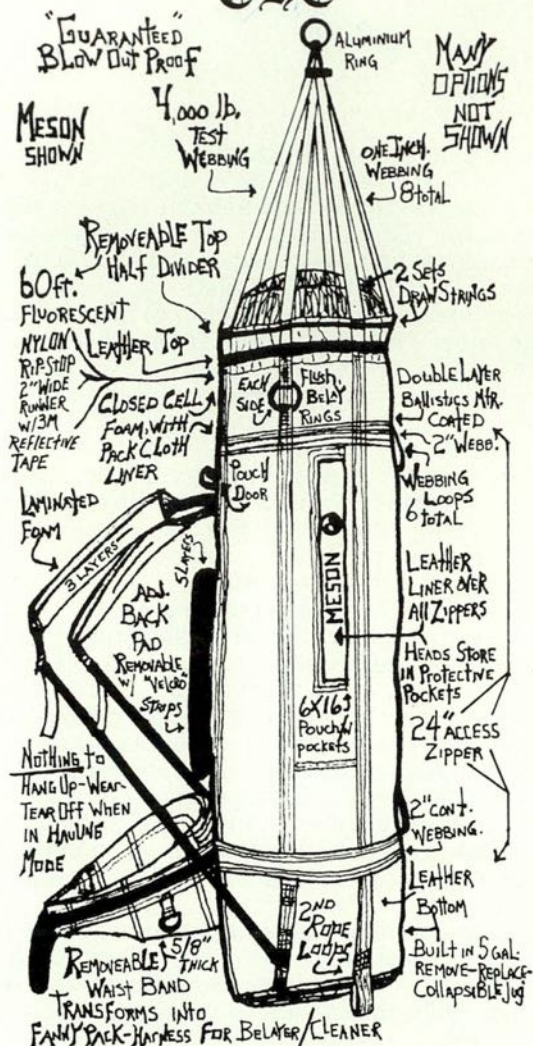 "GUARANTEED"
BLOW OUT PROOF
ALUMINIUM
RING
MANY
OPTIONS
NOT
SHOWN
MESON
SHOWN
4,000 lb.
TEST
WEBBING
ONE INCH.
WEBBING
8 TOTAL
REMOVEABLE TOP
HALF DIVIDER
2 SETS
DRAWSTRINGS
60 ft.
FLUORESCENT
NYLON
RIP-STOP
2" WIDE
RUNNER
W/3M
REFLECTIVE
TAPE
LEATHER TOP
CLOSED CELL
FOAM, WITH
PACK CLOTH
LINER
EACH
SIDE
FLUSH
BELAY
RINGS
DOUBLE LAYER
BALLISTICS MTR.
COATED
2" WEBB.
WEBBING
LOOPS
6 TOTAL
POUCH
DOOR
LAMINATED
FOAM
3 LAYERS
5 LAYERS
ADJ.
BACK
PAD
REMOVABLE
W/ "VELCRO"
STRIPS
MESON
LEATHER
LINER OVER
ALL ZIPPERS
HEADS STORE
IN PROTECTIVE
POCKETS
6X16
POUCH W/
POCKETS
24" ACCESS
ZIPPER
NOTHING TO
HANG UP-WEAR-
TEAR OFF WHEN
IN HAULING
MODE
2" CONT.
WEBBING.
LEATHER
BOTTOM
2ND
ROPE
LOOPS
BUILT IN 5 GAL.
REMOVE-REPLACE-
COLLAPSIBLE JUG
5/8"
THICK
REMOVEABLE
WAIST BAND
TRANSFORMS INTO
FANNY PACK-HARNESS FOR BELAYER/CLEANER